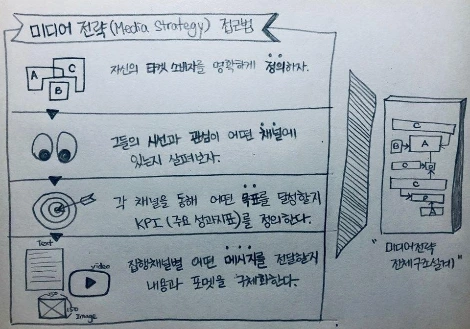 미디어 전략(Media Strategy) 접근법
A
C
B
자신의 타겟 소비자를 명확하게 정의하자.
그들의 시선과 관심이 어떤 채널에
있는지 살펴보자.
각 채널을 통해 어떤 목표를 달성할지
KPI (주요 성과지표)를 정의한다.
Text
video
Image
집행채널별 어떤 메시지를 전달할지
내용과 포맷을 구체화한다.
C
B
A
C
B
C
B
A
"미디어전략
전체구조설계"